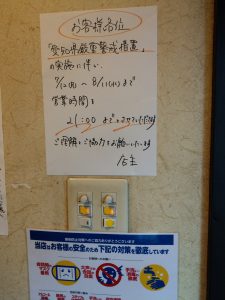 お客様各位
「愛知県厳重警戒措置」
の実施に伴い、
7/12(月) ～ 8/11(水)まで
営業時間を
21:00 までとさせていただきます
ご理解とご協力をお願いいたします
店主
当店はお客様の安全のため下記の対策を徹底しています